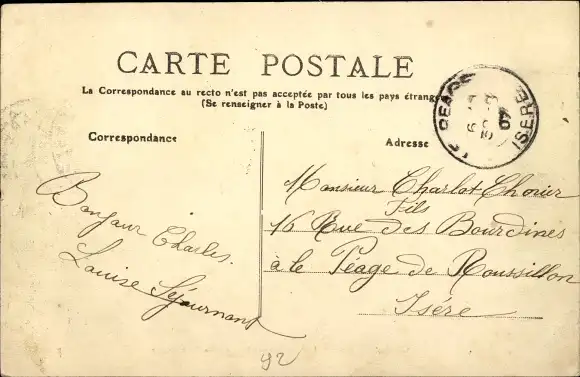 CARTE POSTALE
La Correspondance au recto n'est pas acceptée par tous les pays étrang
(Se renseigner à la Poste)
Correspondance
Adresse
LE PEAGE
ISERE
07
Bonjour Charles.
Louise Séjournant
Monsieur Charlot
Fils
16 Rue des Bourdines
à le Péage de Roussillon
Isére
92